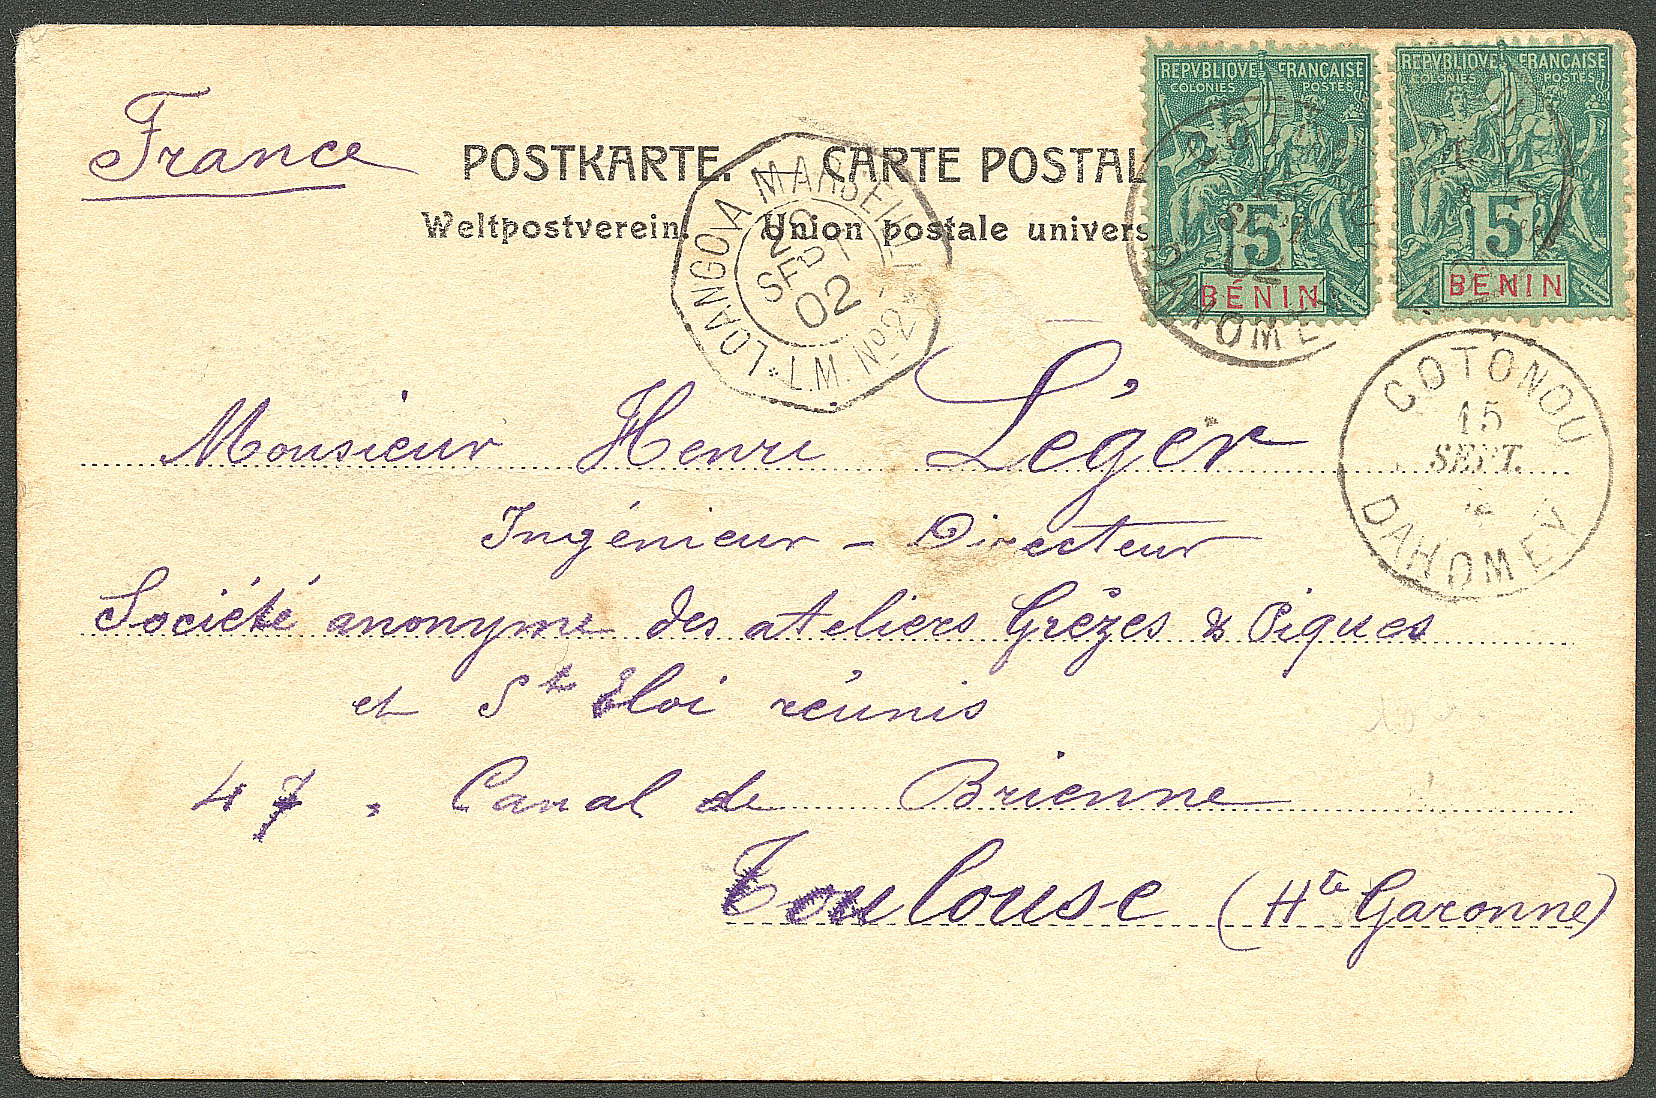 France
POSTKARTE. — CARTE POSTAL
Weltpostverein. Union postale univers
REPVBLIQVE FRANÇAISE
COLONIES POSTES
5
BÉNIN
REPVBLIQVE FRANÇAISE
COLONIES POSTES
5
BÉNIN
LOANGO A MARSEILLE
20
SEPT
02
* L.M. No 2 *
SEPT
02
DAHOMEY
COTONOU
15
SEPT.
DAHOMEY
Monsieur Henri Léger
Ingénieur - Directeur
Société anonyme des ateliers Grèzes & Piques
et St Eloi réunis
47, Canal de Brienne
Toulouse (Hte Garonne)